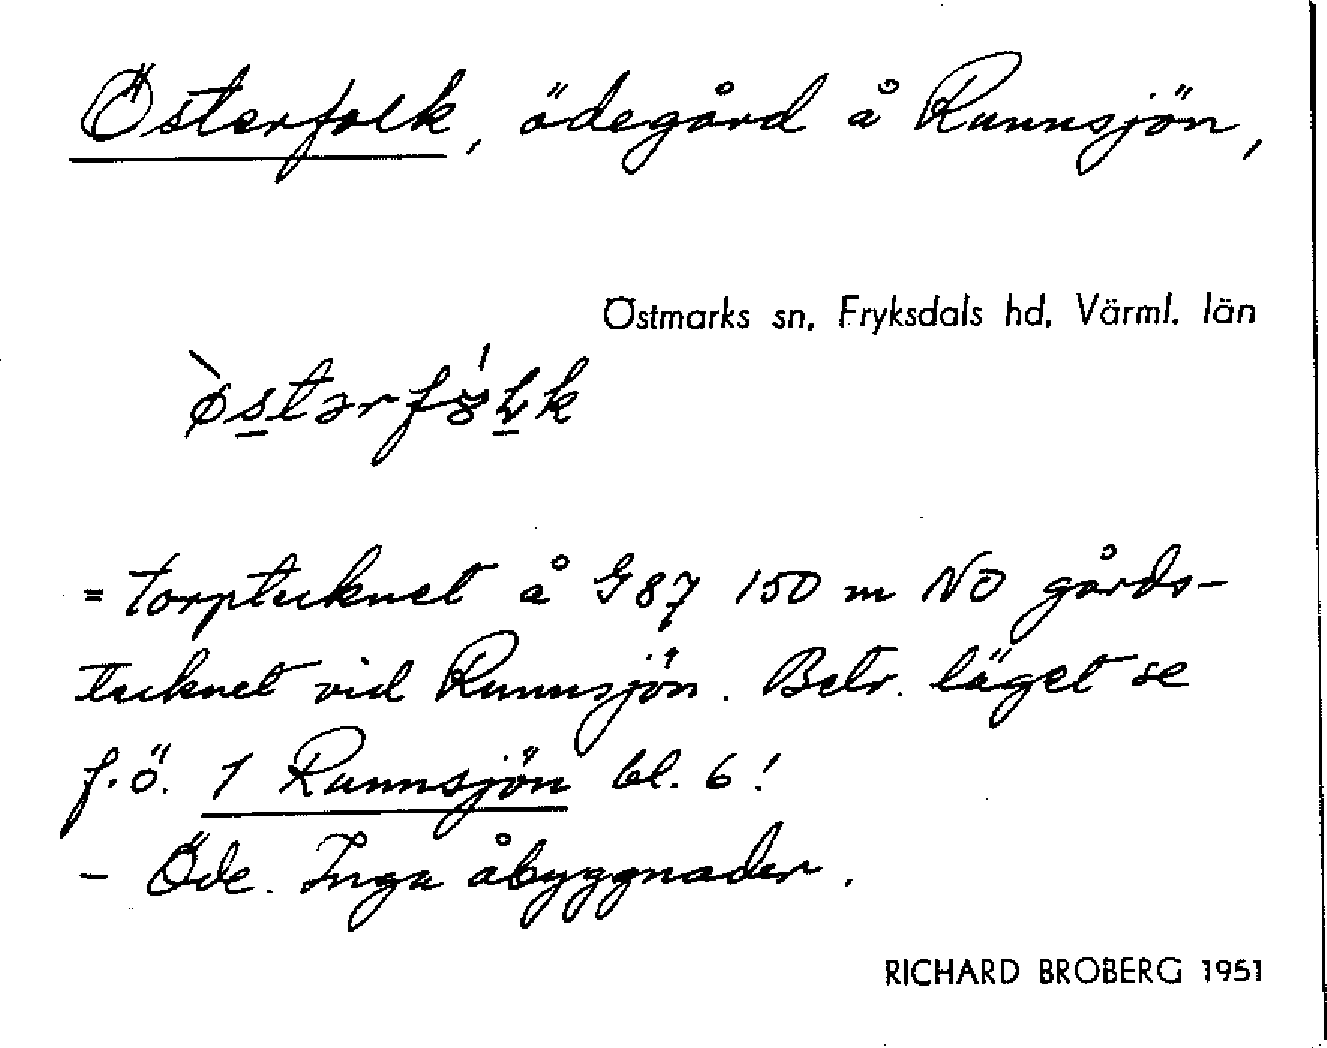 Österfolk, ödegård å Runnsjön,
Östmarks sn, Fryksdals hd, Värml. län
= torptecknet å G87 150 m NO gårds-
tecknet vid Runnsjön. Betr. läget se
f.ö. 1 Runnsjön bl. 6!
- Öde. Inga åbyggnader.
RICHARD BROBERG 1951